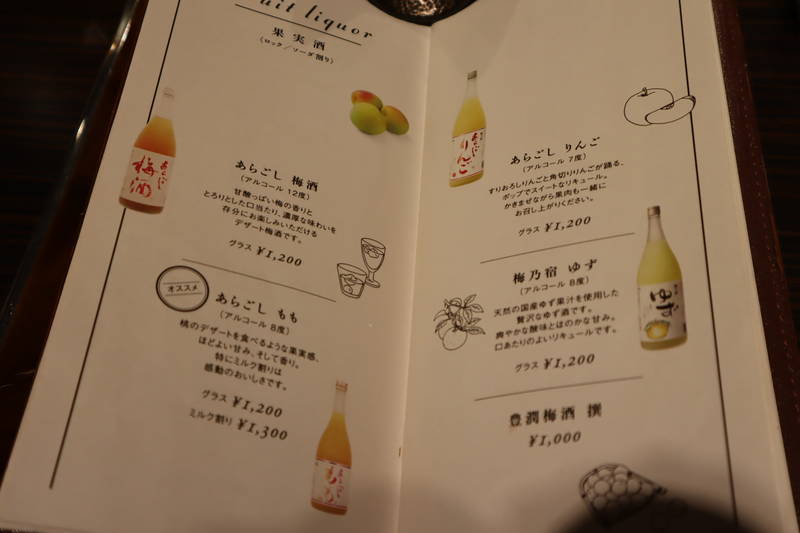 uit liquor
果実酒
(ロック／ソーダ割り)
梅酒
あらごし 梅酒
(アルコール 12度)
甘酸っぱい梅の香りと
とろりとした口当たり、濃厚な味わいを
存分にお楽しみいただける
デザート梅酒です。
グラス ¥1,200
オススメ
あらごし もも
(アルコール 8度)
桃のデザートを食べるような果実感、
ほどよい甘み、そして香り。
特にミルク割りは
感動のおいしさです。
グラス ¥1,200
ミルク割り ¥1,300
あらごし
もも
あらごし
りんご
あらごし りんご
(アルコール 7度)
すりおろしりんごと角切りりんごが踊る、
ポップでスイートなリキュール。
かきまぜながら果肉も一緒に
お召し上がりください。
グラス ¥1,200
梅乃宿 ゆず
(アルコール 8度)
天然の国産ゆず果汁を使用した
贅沢なゆず酒です。
爽やかな酸味とほのかな甘み。
口あたりのよいリキュールです。
グラス ¥1,200
ゆず
豊潤梅酒 撰
¥1,000